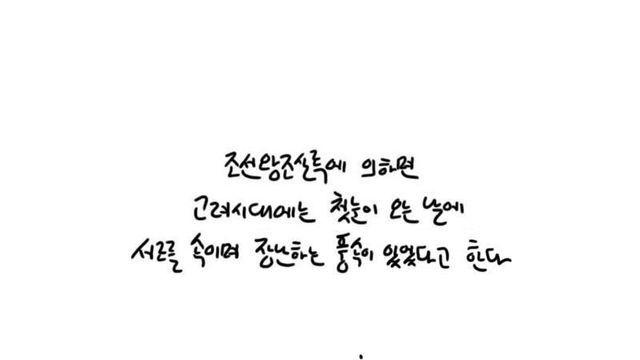 조선왕조실록에 의하면
고려시대에는 첫눈이 오는 날에
서로를 속이며 장난하는 풍속이 있었다고 한다